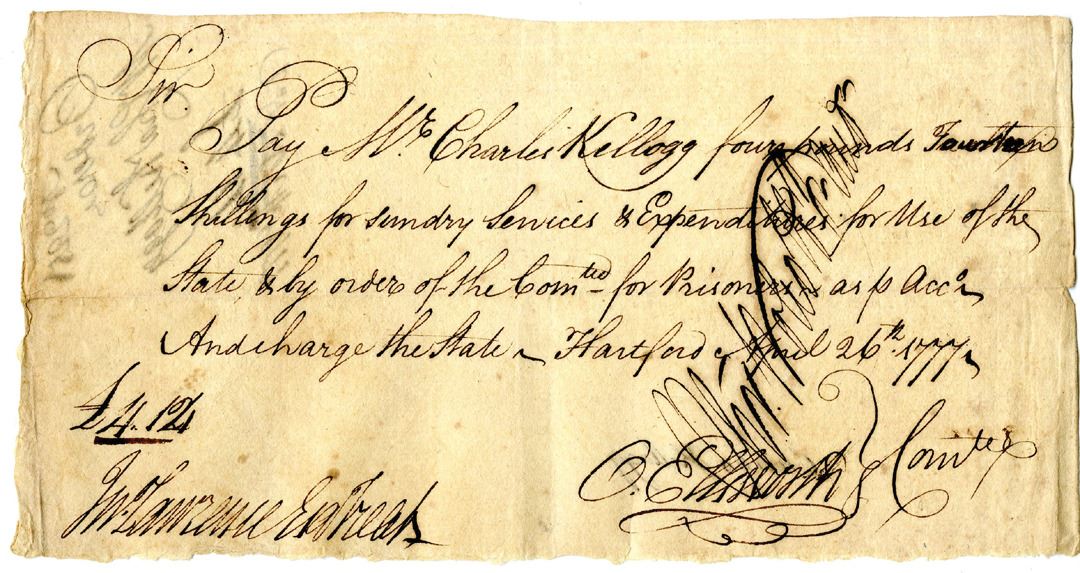 Sir.
Pay Mr. Charles Kellogg four pounds Fourteen
Shillings for sundry Services & Expenditures for Use of the
State, & by order of the Comtee for Prisoners as p Acco
And charge the State Hartford April 26th 1777
£4.14
Jno Lawrence Esq Treas
O. Ellsworth } Comtee